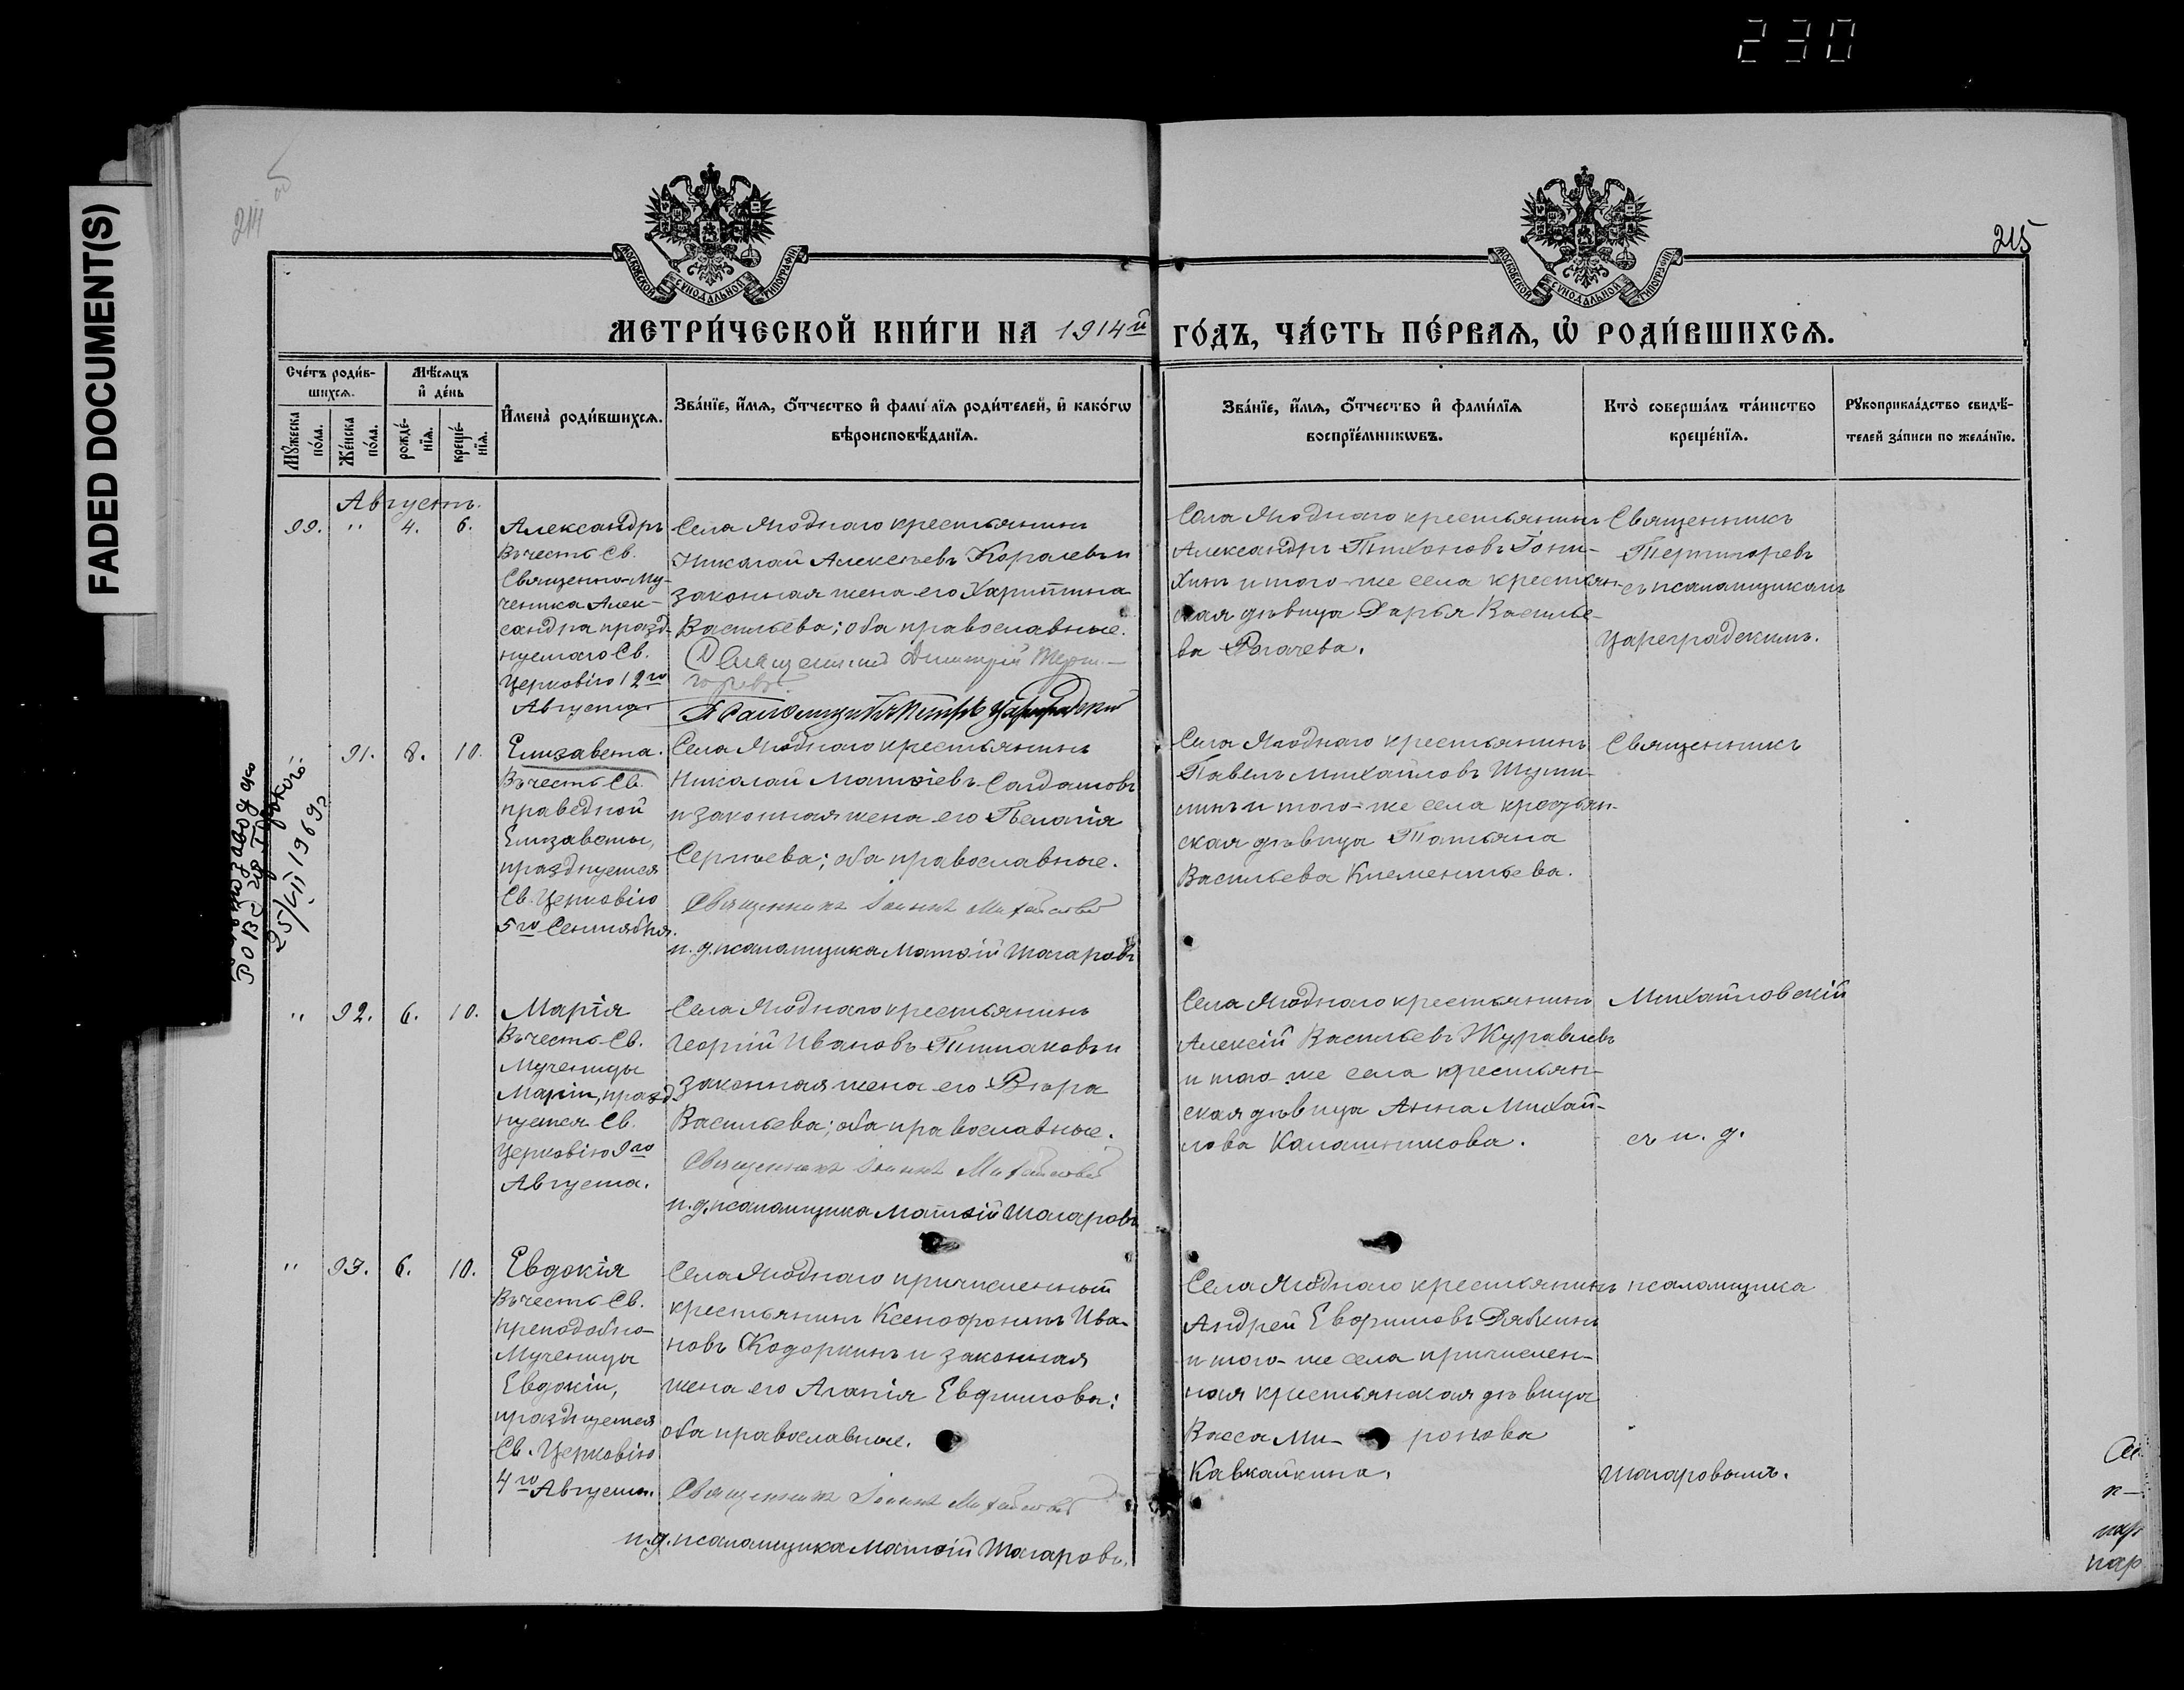 230
FADED DOCUMENT(S)
214 об
215
МОСКОВСКОЙ СѴНОДАЛЬНОЙ ТИПОГРАФІИ
МОСКОВСКОЙ СѴНОДАЛЬНОЙ ТИПОГРАФІИ
МЕТРИ́ЧЕСКОЙ КНИ́ГИ НА 1914й ГО́ДЪ, ЧА́СТЬ ПЕ́РВАѦ, Ѡ҆ РОДИ́ВШИХСѦ.
Сче́тъ роди́в-
шихсѧ.
Мꙋ́жеска по́ла.
Же́нска по́ла.
Мѣ́сѧцъ и҆ де́нь
рожде́-нїѧ.
креще́-нїѧ.
И҆мена̀ роди́вшихсѧ.
Зва́нїе, и҆́мѧ, ѻ҆́тчество и҆ фамі́лїѧ роди́телей, и҆ како́гѡ
вѣроисповѣ́данїѧ.
Зва́нїе, и҆́мѧ, ѻ҆́тчество и҆ фами́лїѧ
воспрїе́мникѡвъ.
Кто̀ соверша́лъ та́инство
креще́нїѧ.
Рꙋкоприкла́дство свидѣ́-
телей за́писи по жела́нїю.
Августъ.
99. " 4. 6.
Александръ
Въ честь Св.
Священно-Му-
ченика Алек-
сандра празд-
нуемаго Св.
Церковію 12го
Августа
Села Ягоднаго крестьянинъ
Николай Алексѣевъ Королевъ и
законная жена его Харитина
Васильева; оба православные.
Священникъ Димитрій Терпи-
горевъ.
Псаломщикъ Петръ Цареградскій
Села Ягоднаго крестьянинъ
Александръ Тихоновъ Гони-
хинъ и того-же села крестьян-
ская дѣвица Дарья Василье-
ва Рогачева.
Священникъ
Терпигоревъ
съ псаломщикомъ
Цареградскимъ.
" 91. 8. 10.
Елизавета.
Въ честь Св.
праведной
Елизаветы,
празднуется
Св. Церковію
5го Сентября.
Села Ягоднаго крестьянинъ
Николай Матѳіевъ Солдатовъ
и законная жена его Пелагія
Сергѣева; оба православные.
Священникъ Іоаннъ Михайловскій
и. д. псаломщика Матѳій Шагаровъ
Села Ягоднаго крестьянинъ
Павелъ Михайловъ Шуми-
линъ и того-же села крестьян-
ская дѣвица Татьяна
Васильева Клементьева.
Священникъ
РОВД
25/VII 1969г
" 92. 6. 10.
Марія
Въ честь Св.
Мученицы
Маріи, празд-
нуется Св.
Церковію 9го
Августа.
Села Ягоднаго крестьянинъ
Георгій Ивановъ Пишаковъ и
законная жена его Вѣра
Васильева; оба православные.
Священникъ Іоаннъ Михайловскій
и. д. псаломщика Матѳій Шагаровъ
Села Ягоднаго крестьянинъ
Алексій Васильевъ Журавлевъ
и того-же села крестьян-
ская дѣвица Анна Михай-
лова Калашникова.
Михайловскій
съ и. д.
" 93. 6. 10.
Евдокія
Въ честь Св.
преподобно-
Мученицы
Евдокіи,
празднуется
Св. Церковію
4го Августа.
Села Ягоднаго причисленный
крестьянинъ Ксенофонтъ Ива-
новъ Кодоркинъ и законная
жена его Агапія Ефимова;
оба православные.
Священникъ Іоаннъ Михайловскій
и. д. псаломщика Матѳій Шагаровъ.
Села Ягоднаго крестьянинъ
Андрей Ефримовъ Рябкинъ
и того-же села причислен-
ная крестьянская дѣвица
Васса Ми- ронова
Кавкайкина.
псаломщика
Шагаровымъ.